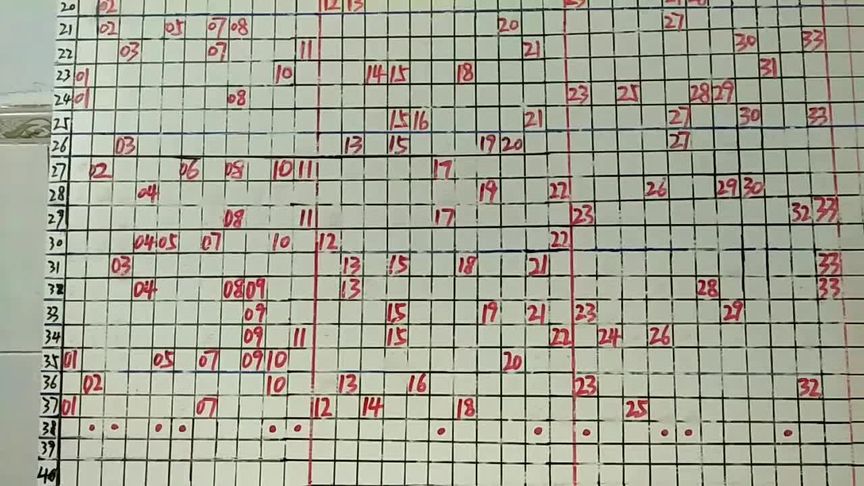 20 02 12 13 23
21 02 05 07 08 20 27
22 03 07 11 21 30 33
23 01 10 14 15 18 31
24 01 08 23 25 28 29
25 15 16 21 27 30 33
26 03 13 15 19 20 27
27 02 06 08 10 11 17
28 04 19 22 26 29 30
29 08 11 17 23 32 33
30 04 05 07 10 12 22
31 03 13 15 18 21 33
32 04 08 09 13 28 33
33 09 15 19 21 23 29
34 09 11 15 22 24 26
35 01 05 07 09 10 20
36 02 10 13 16 23 32
37 01 07 12 14 18 25
38
39
40